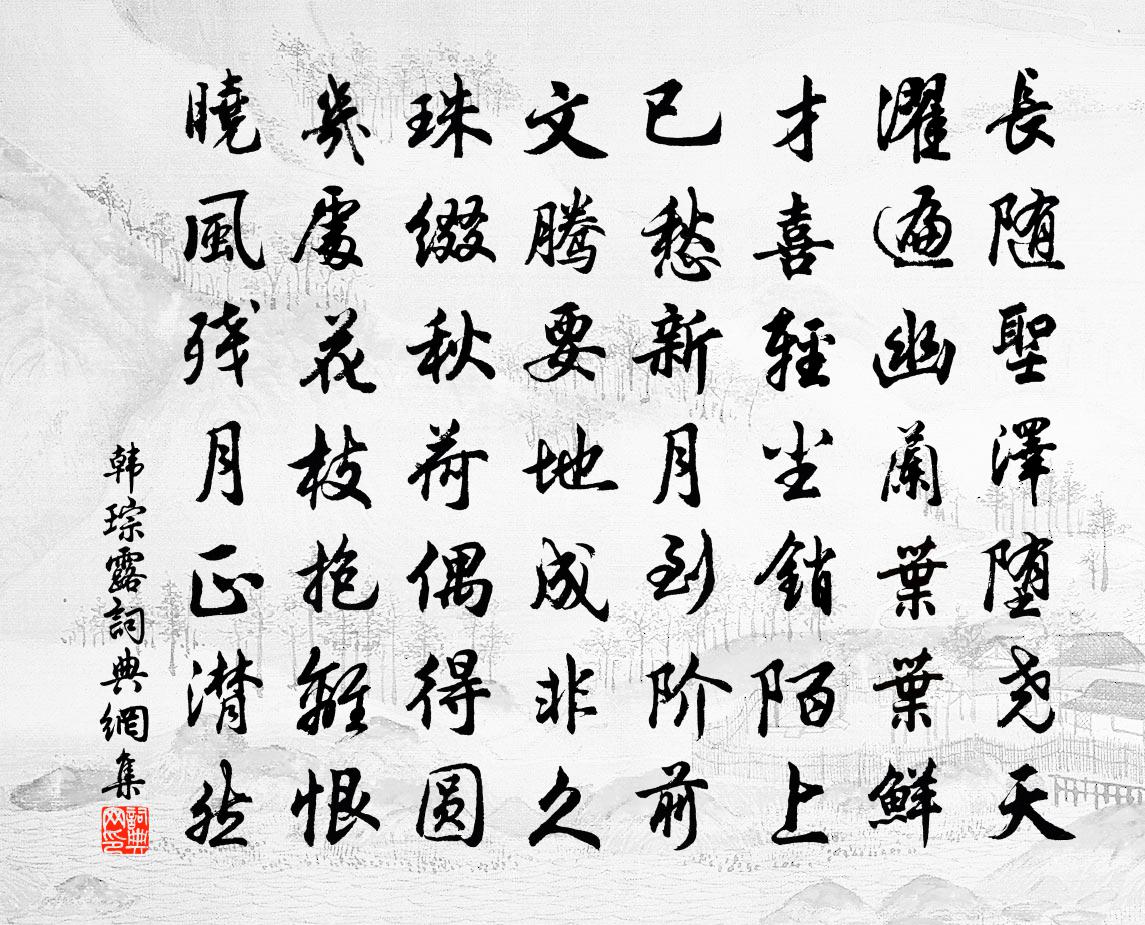 長随聖澤堕尭天
濯遍幽蘭葉葉鮮
才喜輕尘銷陌上
已愁新月到阶前
文騰要地成非久
珠缀秋荷偶得圆
幾處花枝抱離恨
曉風残月正潸然
韩琮露詞典網集
詞典网印